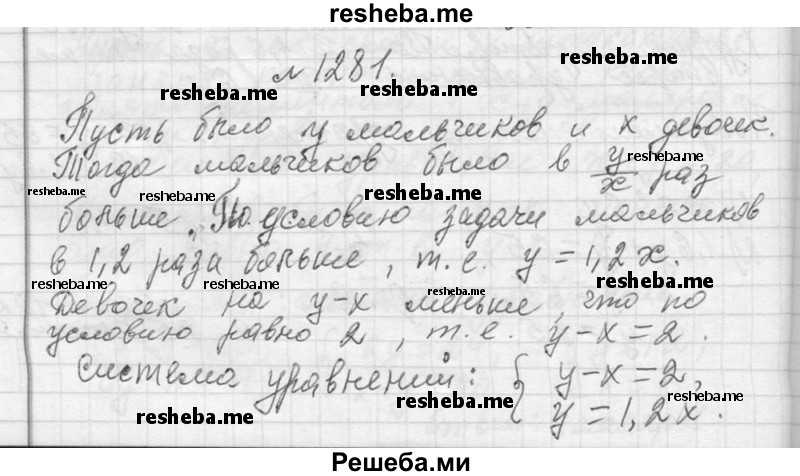 resheba.me
№1281.
resheba.me
resheba.me
resheba.me
Пусть было y мальчиков и x девочек.
Тогда мальчиков было в y/x раз
resheba.me
resheba.me
resheba.me
resheba.me
больше. По условию задачи мальчиков
в 1,2 раза больше, т.е. y = 1,2x.
resheba.me
resheba.me
resheba.me
Девочек на y-x меньше, что по
условию равно 2, т.е. y-x=2.
resheba.me
resheba.me
Система уравнений: { y-x=2,
y=1,2x.
resheba.me
resheba.me
resheba.me
Решеба.ми